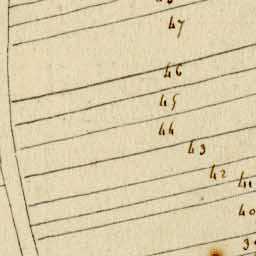 47
46
45
44
43
42
41
40